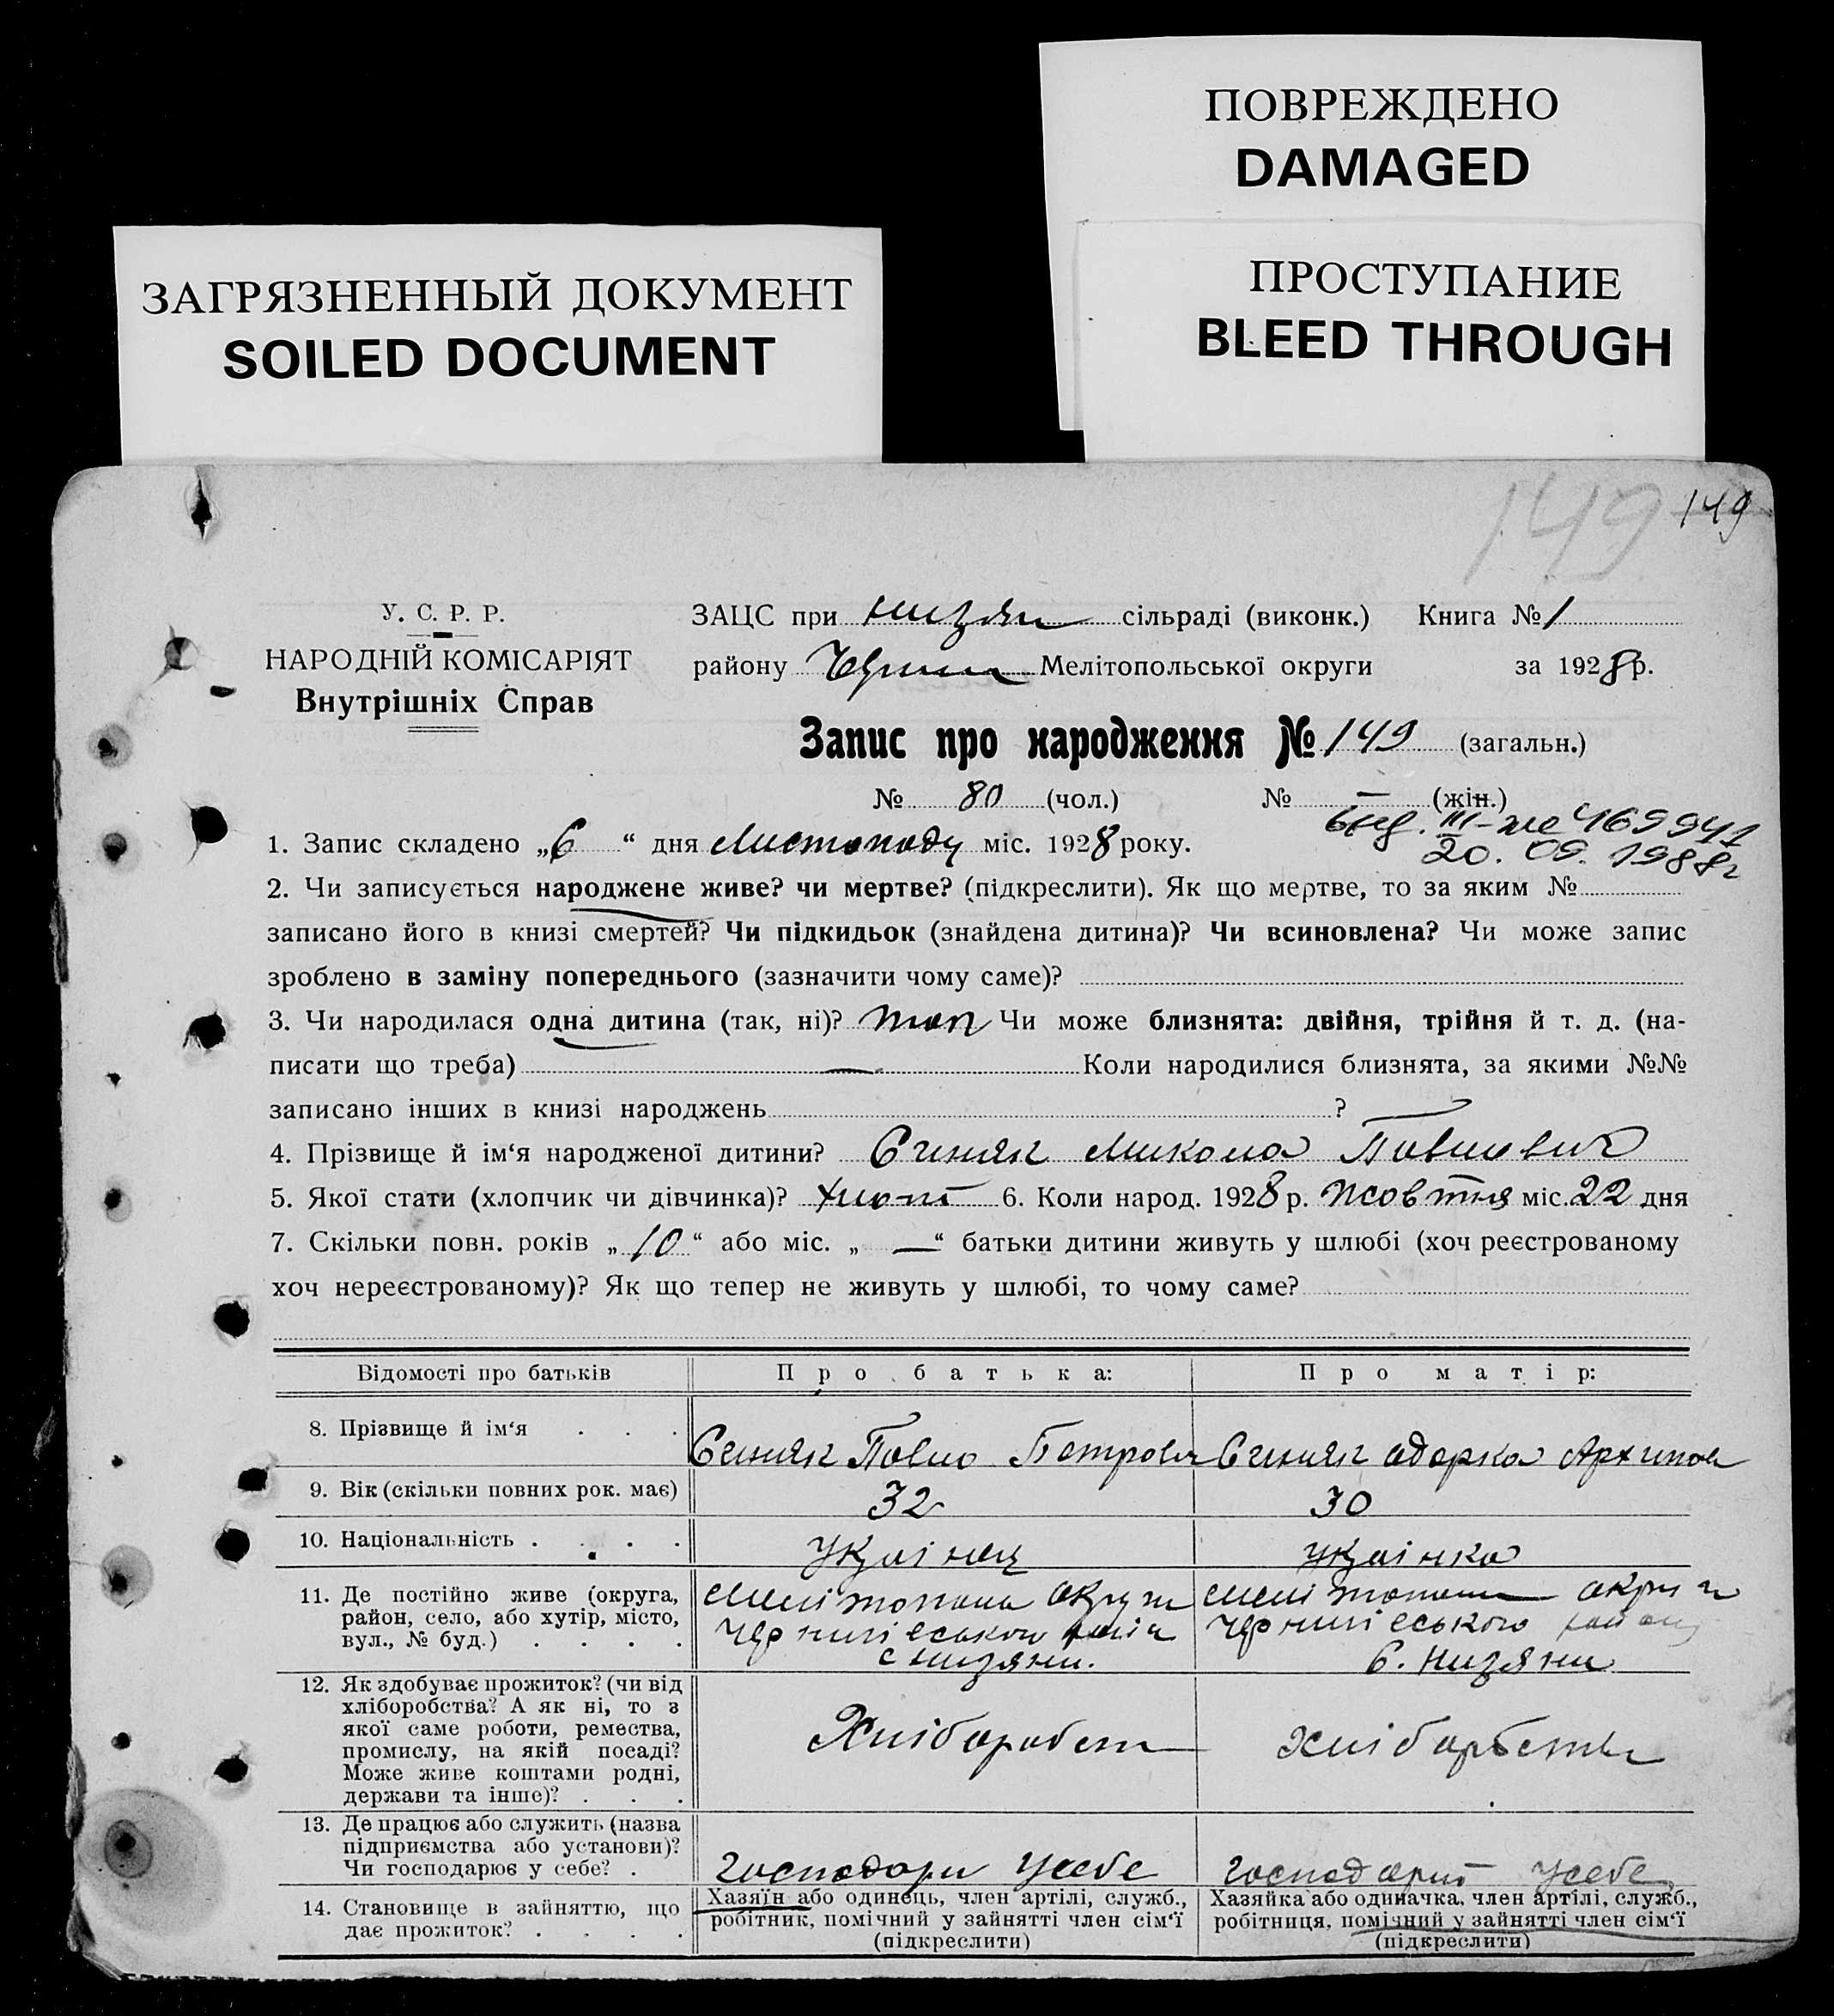 ПОВРЕЖДЕНО
DAMAGED
ПРОСТУПАНИЕ
BLEED THROUGH
ЗАГРЯЗНЕННЫЙ ДОКУМЕНТ
SOILED DOCUMENT
149 149
У. С. Р. Р.
НАРОДНІЙ КОМІСАРІЯТ
Внутрішніх Справ
ЗАЦС при Низян сільраді (виконк.) Книга № 1
району Черниг Мелітопольської округи за 1928 р.
Запис про народження № 149 (загальн.)
№ 80 (чол.) № — (жін.)
III-же 469941
20. 09. 1988г
1. Запис складено „6“ дня Листопаду міс. 1928 року.
2. Чи записується народжене живе? чи мертве? (підкреслити). Як що мертве, то за яким №
записано його в книзі смертей? Чи підкидьок (знайдена дитина)? Чи всиновлена? Чи може запис
зроблено в заміну попереднього (зазначити чому саме)?
3. Чи народилася одна дитина (так, ні)? так Чи може близнята: двійня, трійня й т. д. (на-
писати що треба) — Коли народилися близнята, за якими №№
записано інших в книзі народжень ? —
4. Прізвище й ім‘я народженої дитини? Микола Павлович
5. Якої стати (хлопчик чи дівчинка)? хлоп 6. Коли народ. 1928 р. Жовтня міс. 22 дня
7. Скільки повн. років „10“ або міс. „—“ батьки дитини живуть у шлюбі (хоч реєстрованому
хоч нереєстрованому)? Як що тепер не живуть у шлюбі, то чому саме?
Відомості про батьків Про батька: Про матір:
8. Прізвище й ім‘я . . . Павло Петров Одарка Архипов
9. Вік (скільки повних рок. має) 32 30
10. Національність . . . . Українец Українка
11. Де постійно живе (округа,
район, село, або хутір, місто,
вул., № буд.) . . . .
Мелітопольс округи
Чернигівського район
с Низяни.
Мелітопольс округи
Чернигівського району
с. Низяни
12. Як здобуває прожиток? (чи від
хліборобства? А як ні, то з
якої саме роботи, ремества,
промислу, на якій посаді?
Може живе коштами родні,
держави та інше)? . . .
Хлібороботв
Хлібарбства
13. Де працює або служить (назва
підприємства або установи)?
Чи господарює у себе? .
Господари усебе
Господарит усебе
14. Становище в зайняттю, що
дає прожиток? . . . .
Хазяїн або одинець, член артілі, служб.,
робітник, помічний у зайнятті член сім‘ї
(підкреслити)
Хазяйка або одиначка, член артілі, служб.,
робітниця, помічний у зайнятті член сім‘ї
(підкреслити)